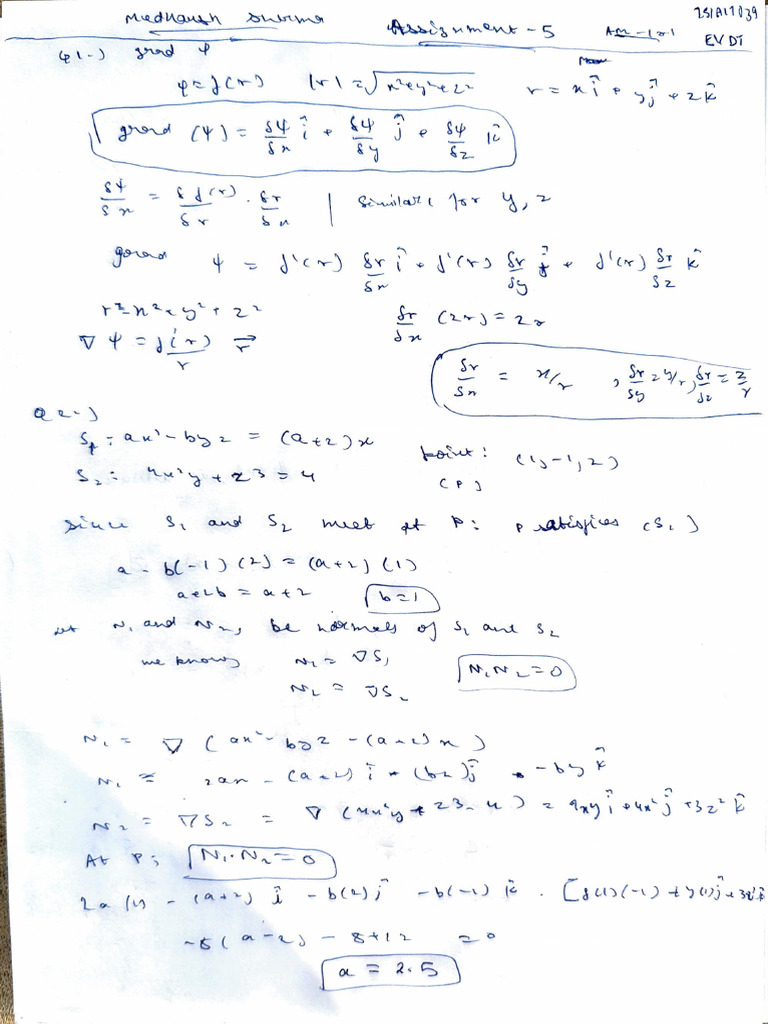 Medhansh Sharma Assignment - 5 AM - 101 25/A17039
EVDT
Q1-) grad φ
φ = f(r) |r| = √x²+y²+z² r = xî + yĵ + zk̂
grad (ψ) = δψ/δx î + δψ/δy ĵ + δψ/δz k̂
δψ/δx = δf(r)/δr · δr/δx | Similar for y, z
grad ψ = f'(r) δr/δx î + f'(r) δr/δy ĵ + f'(r) δr/δz k̂
r² = x² + y² + z² δr/δx (2r) = 2x
∇ψ = f'(r)/r r⃗
δr/δx = x/r , δr/δy = y/r, δr/δz = z/r
Q2-)
S₁ : ax² - byz = (a+2)x point: (1, -1, 2)
S₂ : 4x²y + z3 = 4 (P)
Since S₁ and S₂ meet at P: P satisfies (S₁)
a - b(-1)(2) = (a+2)(1)
a+2b = a+2 b=1
let N₁ and N₂, be normals of S₁ and S₂
we know N₁ = ∇S₁ N₁N₂ = 0
N₂ = ∇S₂
N₁ = ∇ (ax² - byz - (a+2)x)
N₁ = 2ax - (a+2) î - (bz)ĵ - by k̂
N₂ = ∇S₂ = ∇ (4x²y + z3 - 4) = 8xy î + 4x² ĵ + 3z² k̂
At P; N₁·N₂ = 0
2a(1) - (a+2) î - b(2)ĵ - b(-1) k̂ . [8(1)(-1) + 4(1)ĵ + 3z²k̂
-8(a-2) - 8+12 = 0
a = 2.5